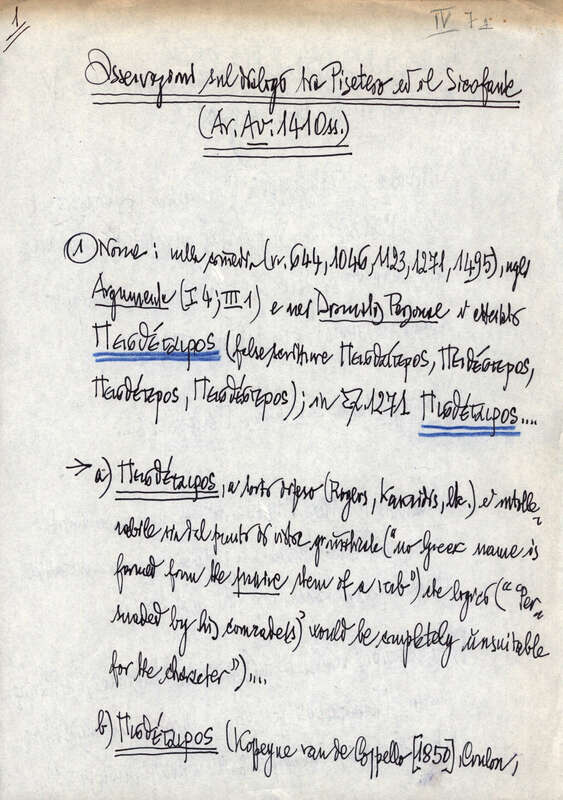 1
IV 71
Osservazioni sul dialogo tra Pisetero ed il Sicofante
(Ar. Av. 1410ss.)
① Nome: nella comedia (vv. 644, 1046, 1123, 1271, 1495), negli
Argumenta (I 4; III 1) e nei Dramatis Personae è attestato
Πεισθέταιρος (false scritture Πεισθαίτερος, Πειθέστερος,
Πεισθέτερος, Πεισθέστερος); in Σ 1271 Πισθέταιρος....
→ a) Πεισθέταιρος, a torto difeso (Rogers, Kakridis, etc.) è intolle-
rabile sia dal punto di vista grammaticale ("no Greek name is
formed from the passive stem of a verb") che logico (“ ‘Per-
suaded by his comrade(s)’ would be completely unsuitable
for the character”)....
b) Πισθέταιρος (Kopeyne van de Coppello [1850], Coulon,